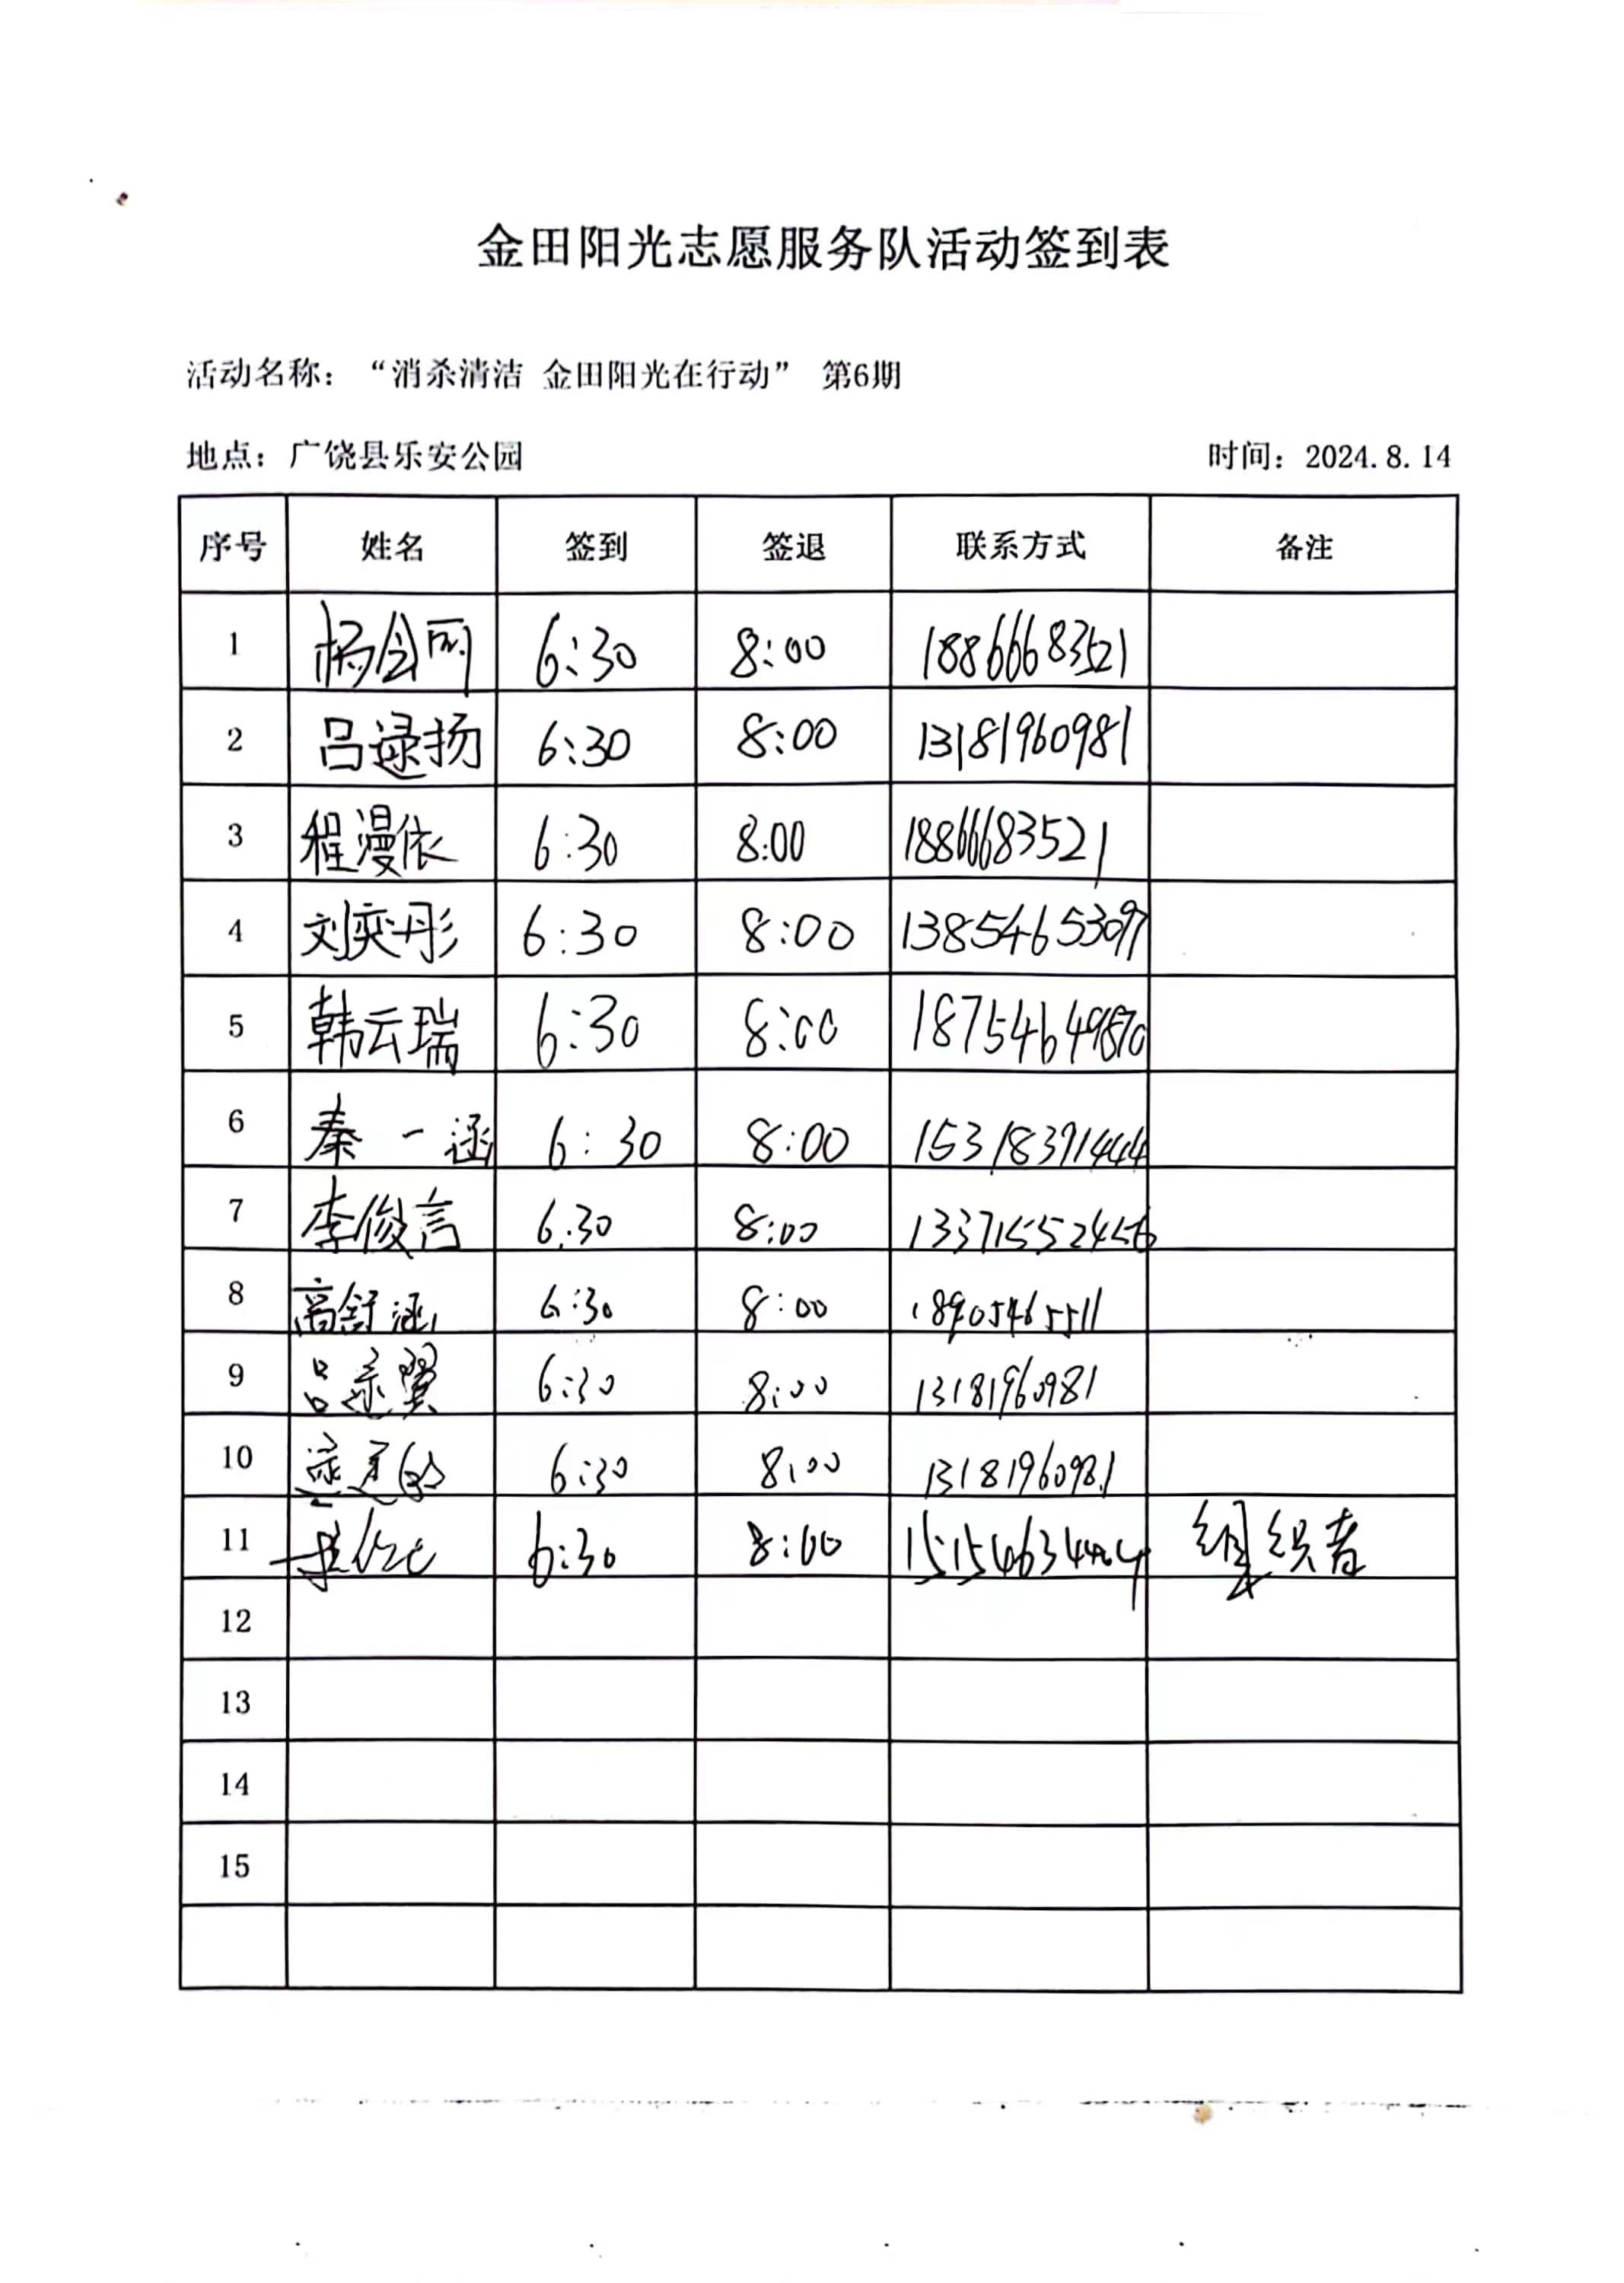 金田阳光志愿服务队活动签到表
活动名称：“消杀清洁 金田阳光在行动” 第6期
地点：广饶县乐安公园 时间：2024.8.14
序号 姓名 签到 签退 联系方式 备注
1 杨会网 6:30 8:00 18866683521
2 吕逯扬 6:30 8:00 13181960981
3 程漫依 6:30 8:00 18866683521
4 刘奕彤 6:30 8:00 13854653097
5 韩云瑞 6:30 8:00 18754649870
6 秦一涵 6:30 8:00 15318371444
7 李俊言 6:30 8:00 13371552456
8 高舒涵 6:30 8:00 18905465511
9 吕逯翼 6:30 8:00 13181960981
10 6:30 8:00 13181960981
11 6:30 8:00 组织者
12
13
14
15